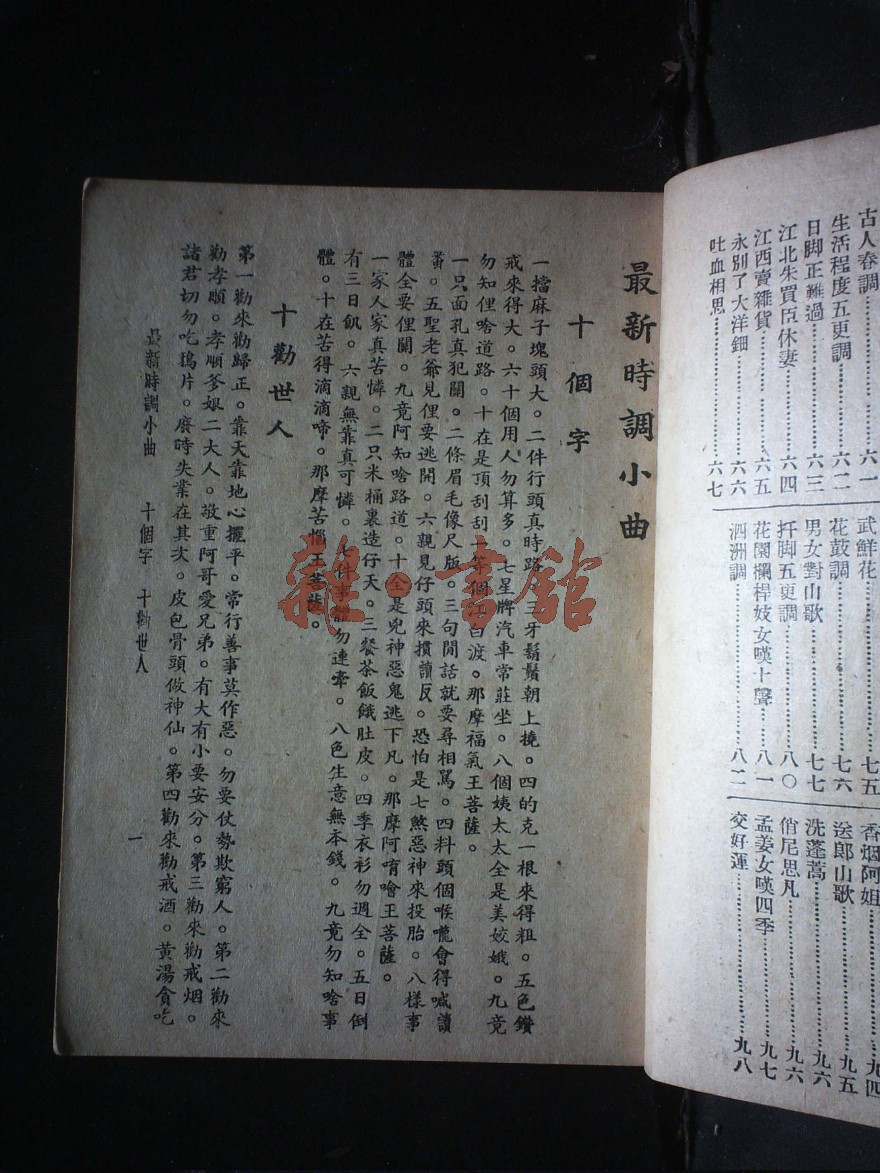 古人春調……六一
生活程度五更調……六二
日脚正難過……六三
江北朱買臣休妻……六四
江西賣雜貨……六五
永別了大洋鈿……六六
吐血相思……六七
武鮮花……七五
花鼓調……七六
男女對山歌……七七
扦脚五更調……八〇
花園欄桿妓女嘆十聲……八一
泗洲調……八二
香烟阿姐……九四
送郎山歌……九五
洗蓬蒿……九六
俏尼思凡……九六
孟姜女嘆四季……九七
交好運……九八
最新時調小曲
十個字
一擋麻子塊頭大。二件行頭真時路。三牙鬍鬚朝上撓。四的克一根來得粗。五色鑽
戒來得大。六十個用人勿算多。七星牌汽車常莊坐。八個姨太太全是美姣娥。九竟
勿知俚啥道路。十在是頂刮刮一等個江白渡。那摩福氣王菩薩。
一只面孔真犯關。二條眉毛像尺版。三句閒話就要尋相駡。四料頭個喉嚨會得喊讀
番。五聖老爺見俚要逃開。六親見仔頭來摜讀反。恐怕是七煞惡神來投胎。八樣事
體全要俚關。九竟阿知啥路道。十全是兇神惡鬼逃下凡。那摩阿唷噲王菩薩。
一家人家真苦憐。二只米桶裏造仔天。三餐茶飯餓肚皮。四季衣衫勿週全。五日倒
有三日飢。六親無靠真可憐。七件事體勿連牽。八色生意無本錢。九竟勿知啥事
體。十在苦得滴滴啼。那摩苦惱王菩薩。
十勸世人
第一勸來勸歸正。靠天靠地心擺平。常行善事莫作惡。勿要仗勢欺窮人。第二勸來
勸孝順。孝順爹娘二大人。敬重阿哥愛兄弟。有大有小要安分。第三勸來勸戒烟。
諸君切勿吃鴉片。廢時失業在其次。皮包骨頭做神仙。第四勸來勸戒酒。黃湯貪吃
最新時調小曲 十個字 十勸世人
一
雜·書館